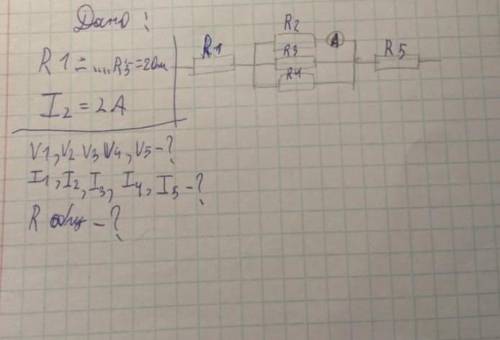 Дано:
R1 = ....R5 = 2Ом
I2 = 2A
V1, V2 V3 V4, V5 - ?
I1, I2, I3, I4, I5 - ?
R общ - ?
R1
R2
A
R3
R4
R5